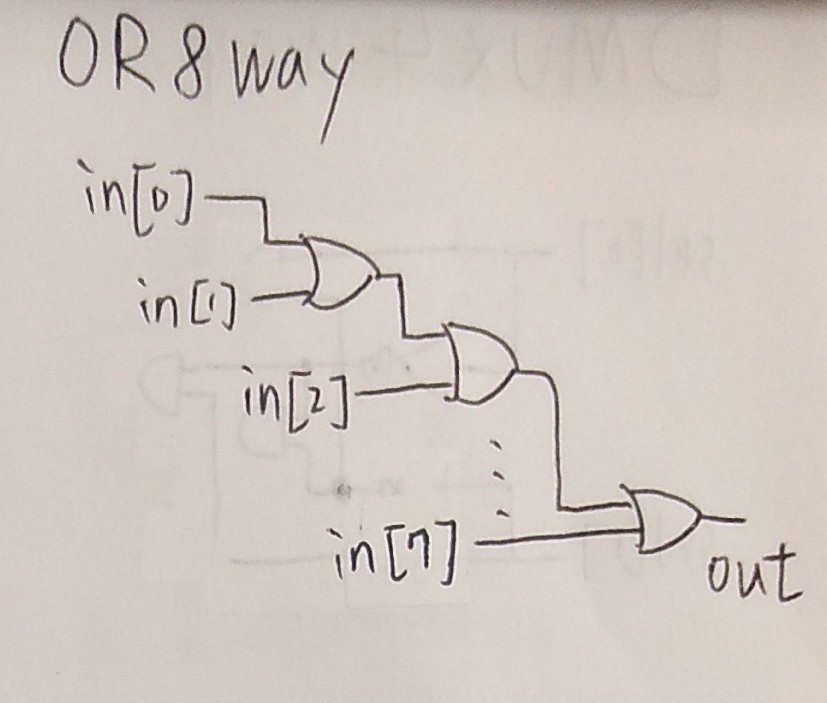 OR 8 way
in[0]
in[1]
in[2]
in[7]
out